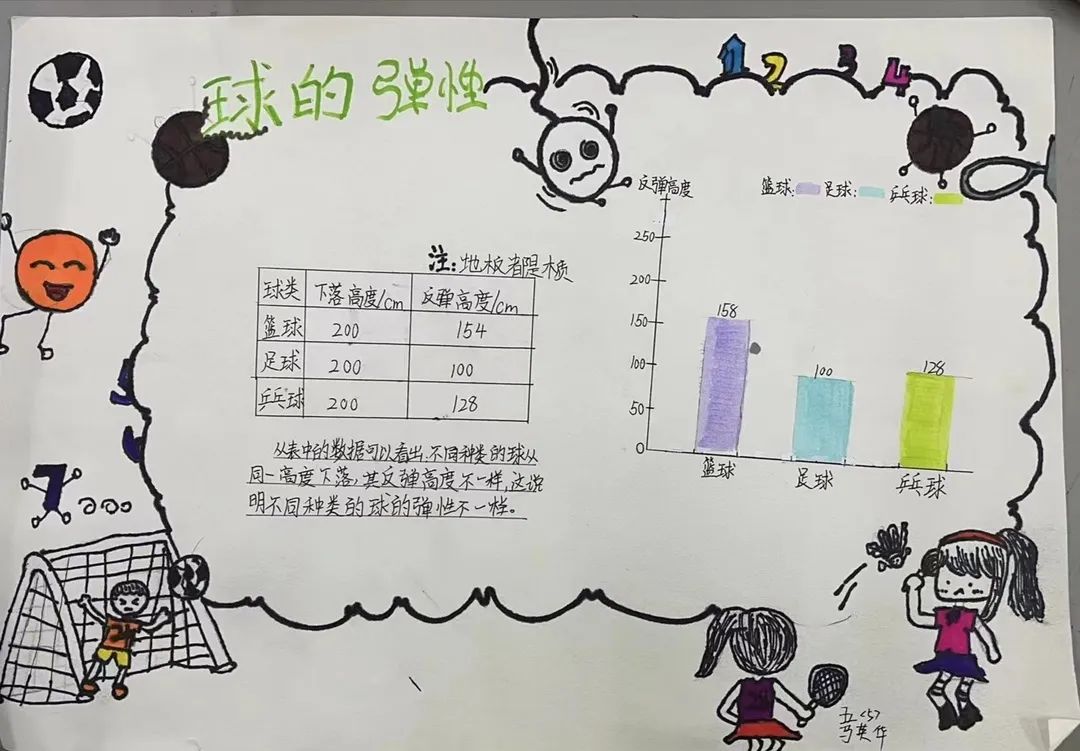 球的弹性
1 2 3 4
注:地板都是木质
球类 下落高度/cm 反弹高度/cm
篮球 200 154
足球 200 100
乒乓球 200 128
从表中的数据可以看出,不同种类的球从
同一高度下落,其反弹高度不一样,这说
明不同种类的球的弹性不一样。
反弹高度
篮球: 足球: 乒乓球:
250
200
150
100
50
0
158
100
128
篮球 足球 乒乓球
5
6
7
五<5>